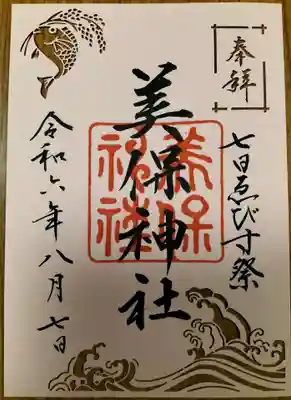 奉拝
七日ゑびす祭
美保神社
美保神社
令和六年八月七日